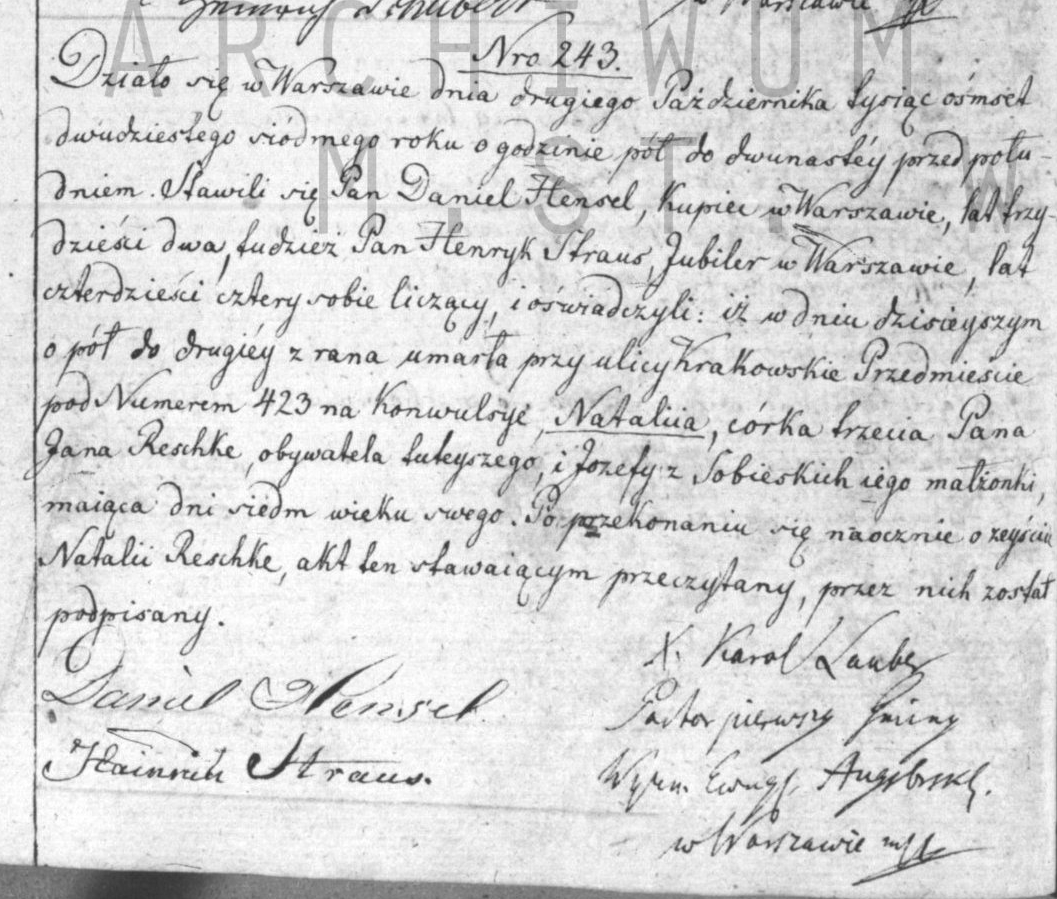 Heinrich Schubert w Warszawie
ARCHIWUM
M.ST.W
Nro 243.
Działo się w Warszawie dnia drugiego Października tysiąc ośmset
dwudziestego siódmego roku o godzinie pół do dwunastéy przed połu-
dniem. Stawili się Pan Daniel Hensel, Kupiec w Warszawie, lat trzy-
dzieści dwa, tudzież Pan Henryk Straus, Jubiler w Warszawie, lat
czterdzieści cztery sobie liczący, i oświadczyli: iż w dniu dzisieyszym
o pół do drugiéy z rana umarła przy ulicy Krakowskie Przedmieście
pod Numerem 423 na konwulsye, Nataliia, córka trzecia Pana
Jana Reschke, obywatela tuteyszego, i Jozefy z Sobieskich iego małżonki,
maiąca dni siedm wieku swego. Po przekonaniu się naocznie o zeyściu
Natalii Reschke, akt ten stawaiącym przeczytany, przez nich został
podpisany.
X. Karol Lauber
Daniel Hensel.
Pastor pierwszy Gminy
Hainrich Straus.
Wyzn. Ewngl. Augsbrskl.
w Warszawie